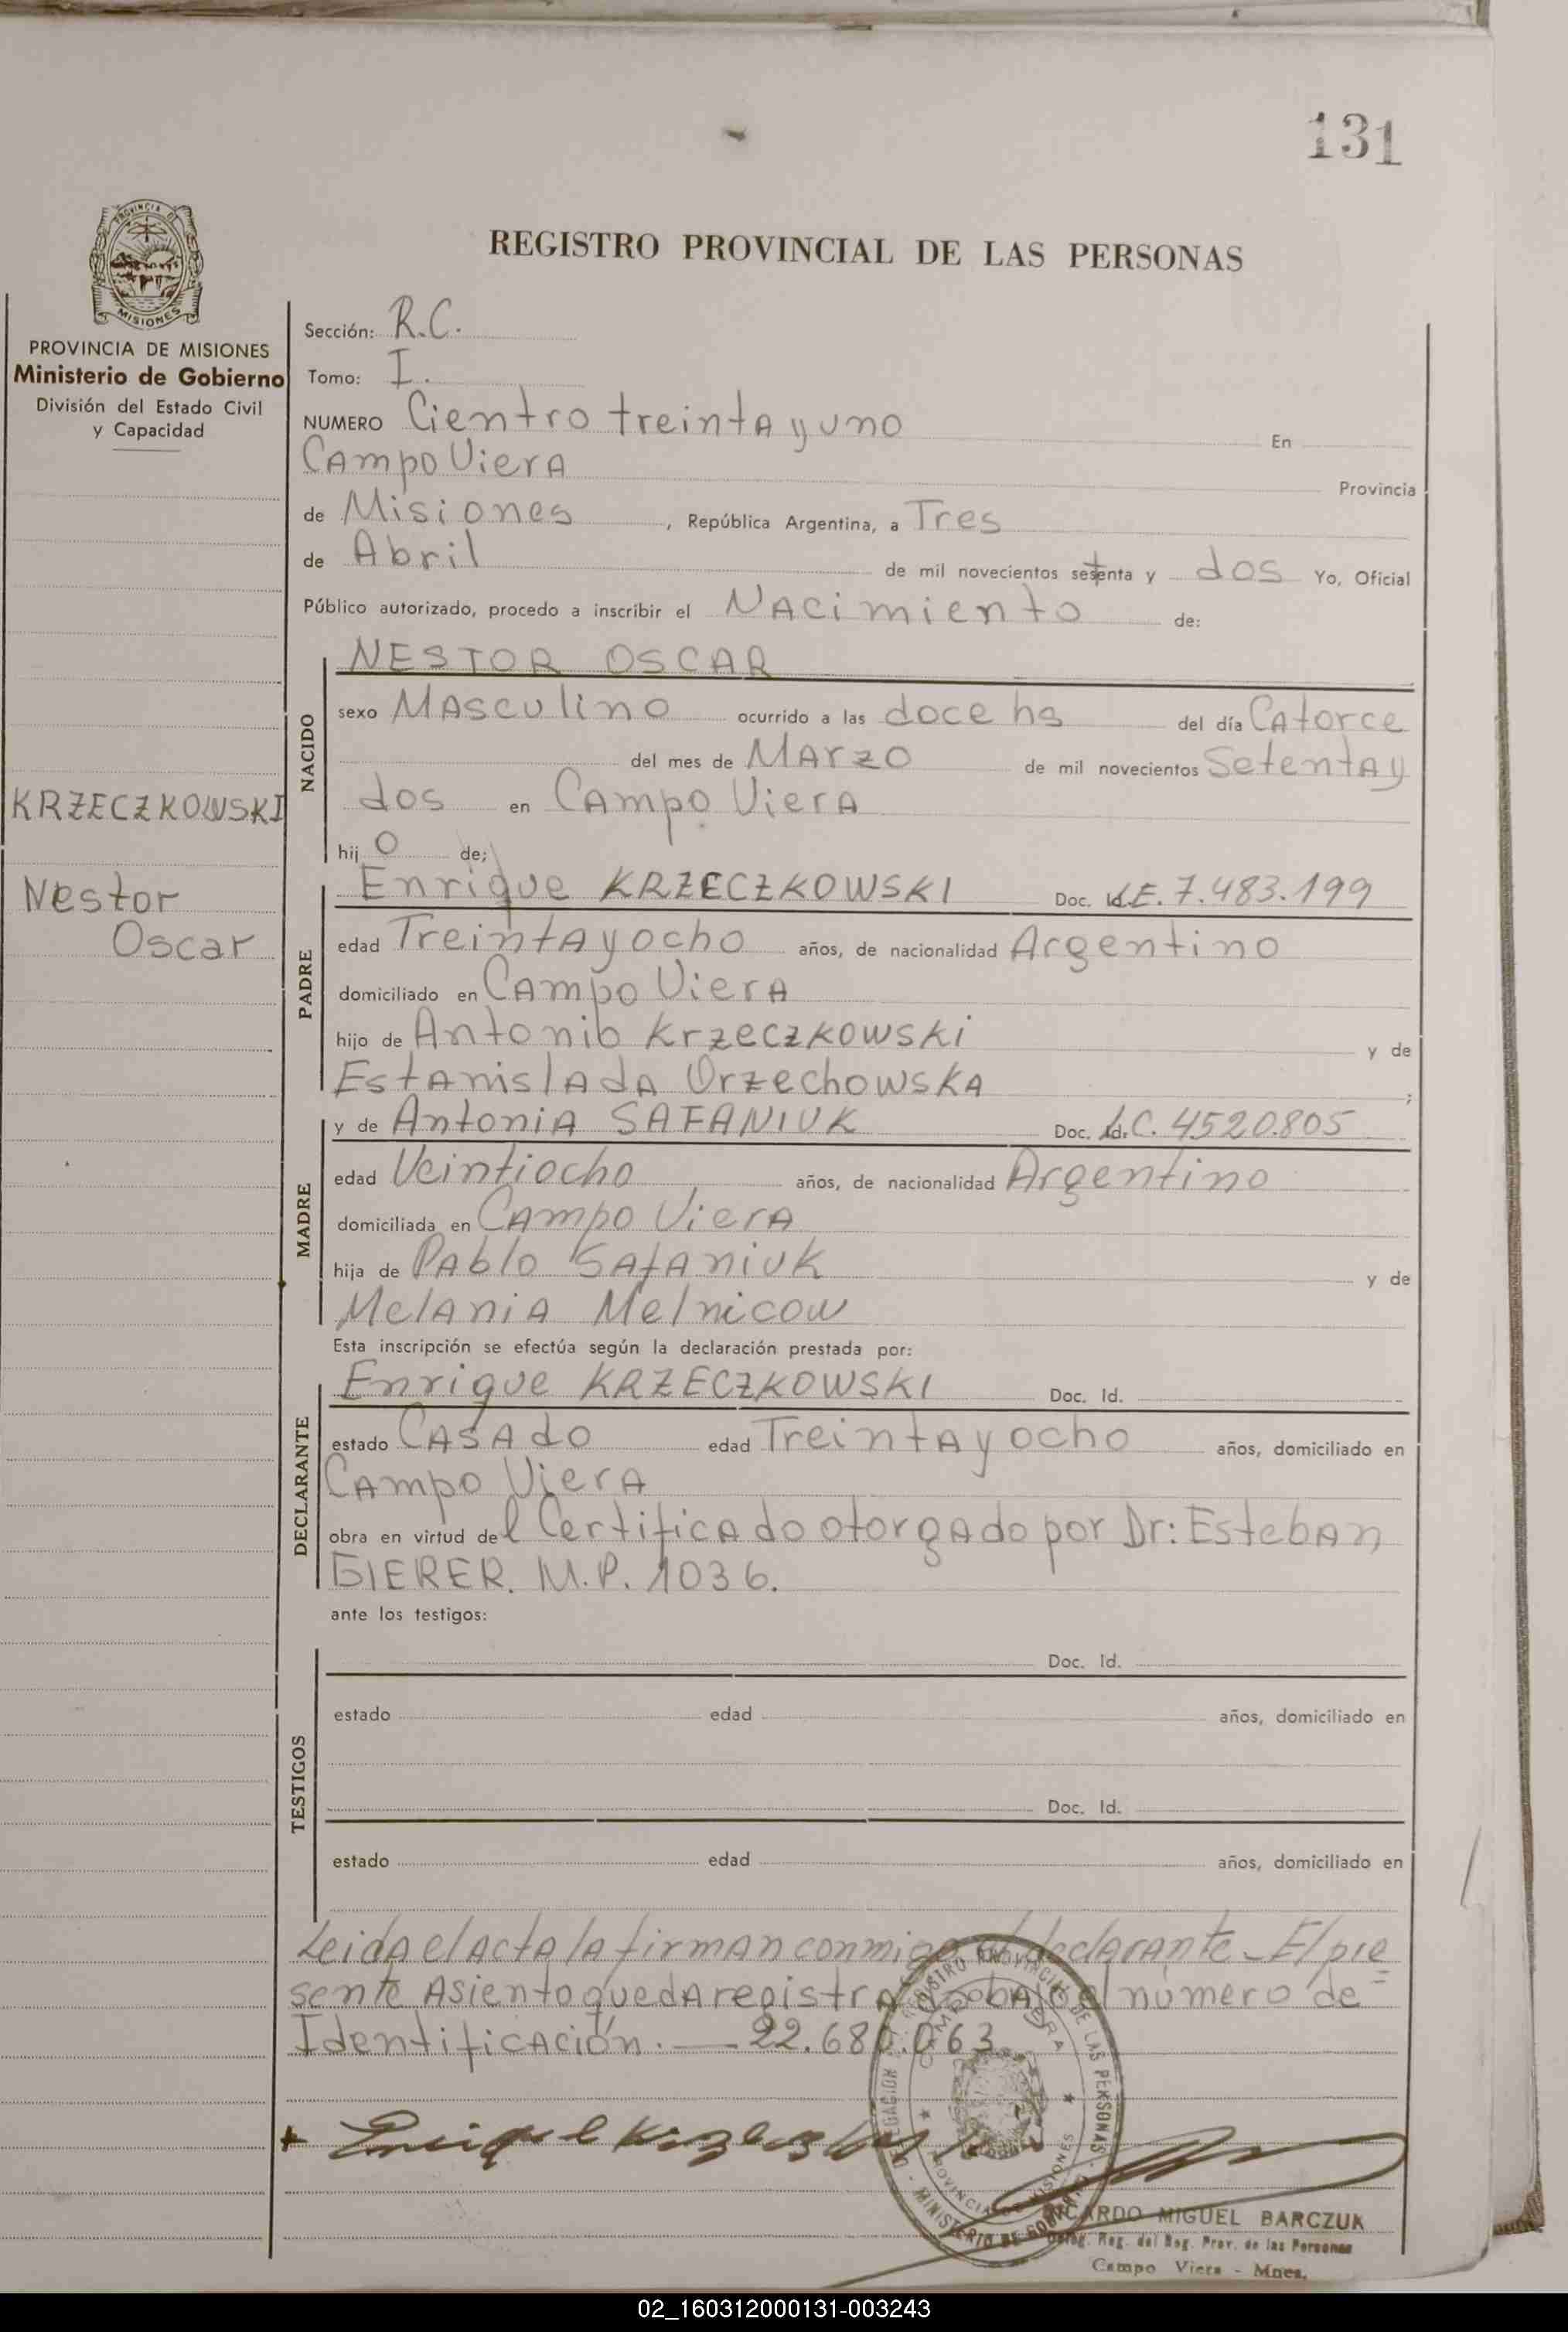 131
PROVINCIA DE
MISIONES
REGISTRO PROVINCIAL DE LAS PERSONAS
PROVINCIA DE MISIONES
Ministerio de Gobierno
División del Estado Civil
y Capacidad
KRZECZKOWSKI
Nestor
Oscar
Sección: R.C.
Tomo: I.
NUMERO Cientro treinta y uno En
Campo Viera Provincia
de Misiones, República Argentina, a Tres
de Abril de mil novecientos setenta y dos Yo, Oficial
Público autorizado, procedo a inscribir el Nacimiento de:
NACIDO
NESTOR OSCAR
sexo Masculino ocurrido a las doce hs del día Catorce
del mes de Marzo de mil novecientos Setenta y
dos en Campo Viera
hij o de;
PADRE
Enrique KRZECZKOWSKI Doc. L.E. 7.483.199
edad Treinta y ocho años, de nacionalidad Argentino
domiciliado en Campo Viera
hijo de Antonio Krzeczkowski y de
Estanislada Orzechowska ;
MADRE
y de Antonia SAFANIUK Doc. L.C. 4520.805
edad Veintiocho años, de nacionalidad Argentino
domiciliada en Campo Viera
hija de Pablo Safaniuk y de
Melania Melnicow
Esta inscripción se efectúa según la declaración prestada por:
DECLARANTE
Enrique KRZECZKOWSKI Doc. Id.
estado Casado edad Treinta y ocho años, domiciliado en
Campo Viera
obra en virtud del Certificado otorgado por Dr: Esteban
GIERER. M.P. 1036.
ante los testigos:
TESTIGOS
Doc. Id.
estado edad años, domiciliado en
Doc. Id.
estado edad años, domiciliado en
Leida el acta la firman conmigo el declarante - El pre
sente Asiento queda registrado bajo el número de
Identificación. — 22.680.063
Enrique Krzeczkowski
REGISTRO PROVINCIAL DE LAS PERSONAS
CAMPO VIERA
PROVINCIA DE MISIONES
MINISTERIO DE GOBIERNO
DELEGACION
RICARDO MIGUEL BARCZUK
Deleg. Reg. del Reg. Prov. de las Personas
Campo Viera - Mnes.
02_160312000131-003243